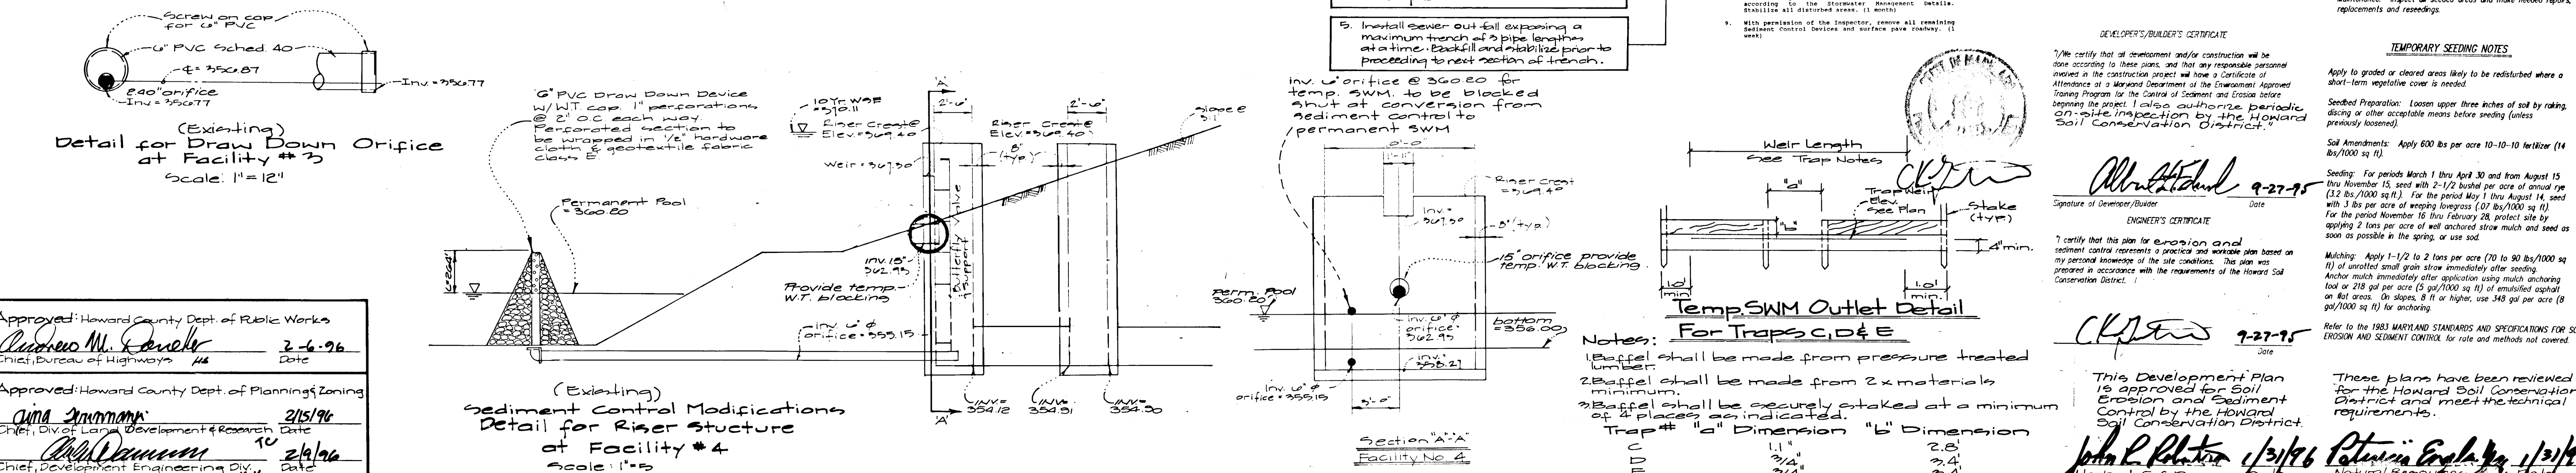 Screw on cap
for 6" PVC
6" PVC Sched. 40
¢= 356.87
Inv.= 356.77
2.40" orifice
Inv.= 356.77
(Existing)
Detail for Draw Down Orifice
at Facility # 3
Scale: 1"=12"
Approved: Howard County Dept. of Public Works
Chief, Bureau of Highways
2-6-96
Date
Approved: Howard County Dept. of Planning & Zoning
2/15/96
Chief, Div. of Land Development & Research Date
2/9/96
Chief, Development Engineering Div. Date
6" PVC Draw Down Device
w/ W.T. cap. 1" perforations
@ 2" O.C. each way.
Perforated section to
be wrapped in 1/2" hardware
cloth & geotextile fabric
class E
Permanent Pool
= 360.20
10 Yr. WSE
= 370.11
Riser Crest @
Elev.= 369.40
Weir = 367.50
"A"
2'-6"
Riser Crest @
Elev.= 369.40
8"
(typ)
2'-6"
slope @
3:1
Butterfly Valve
Support
Inv. 15"
362.95
Provide temp.
W.T. blocking
Inv. 6" ø
orifice = 355.15
INV.=
354.12
354.31
354.30
"A"
(Existing)
Sediment Control Modifications
Detail for Riser Stucture
at Facility # 4
Scale: 1"=5
5. Install sewer out fall exposing a
maximum trench of 3 pipe lengths
at a time. Backfill and stabilize prior to
proceeding to next section of trench.
Inv. 6" orifice @ 360.20 for
temp. SWM. to be blocked
shut at conversion from
sediment control to
permanent SWM
Riser Crest
= 369.40
Inv.=
367.50
8" (typ)
15" orifice provide
temp. W.T. blocking
Perm. Pool
360.20
Inv. 6" ø
orifice =
362.95
bottom
= 356.00
Inv. 6" ø
orifice = 355.15
Section "A-A"
Facility No. 4
according to the Stormwater Management Details.
Stabilize all disturbed areas. (1 month)
9. With permission of the Inspector, remove all remaining
Sediment Control Devices and surface pave roadway. (1
week)
Weir Length
See Trap Notes
"a"
Trap Weir
Elev.
See Plan
"b"
Stake
(typ.)
4" min.
1.0'
min
1.0'
min.
Temp. SWM Outlet Detail
For Traps C, D & E
Notes:
1. Baffel shall be made from pressure treated
lumber.
2. Baffel shall be made from 2 x materials
minimum.
3. Baffel shall be securely staked at a minimum
of 4 places as indicated.
Trap # "a" Dimension "b" Dimension
C 1.1' 2.8'
D 3/4' 3.4'
E 3/4' 3.4'
DEVELOPER'S/BUILDER'S CERTIFICATE
"I/We certify that all development and/or construction will be
done according to these plans, and that any responsible personnel
involved in the construction project will have a Certificate of
Attendance at a Maryland Department of the Environment Approved
Training Program for the Control of Sediment and Erosion before
beginning the project. I also authorize periodic
on-site inspection by the Howard
Soil Conservation District."
9-27-95
Signature of Developer/Builder Date
ENGINEER'S CERTIFICATE
"I certify that this plan for erosion and
sediment control represents a practical and workable plan based on
my personal knowledge of the site conditions. This plan was
prepared in accordance with the requirements of the Howard Soil
Conservation District.
9-27-95
Date
This Development Plan
is approved for Soil
Erosion and Sediment
Control by the Howard
Soil Conservation District.
1/31/96
replacements and reseedings.
TEMPORARY SEEDING NOTES
Apply to graded or cleared areas likely to be redisturbed where a
short-term vegetative cover is needed.
Seedbed Preparation: Loosen upper three inches of soil by raking,
discing or other acceptable means before seeding (unless
previously loosened).
Soil Amendments: Apply 600 lbs per acre 10-10-10 fertilizer (14
lbs/1000 sq ft).
Seeding: For periods March 1 thru April 30 and from August 15
thru November 15, seed with 2-1/2 bushel per acre of annual rye
(3.2 lbs./1000 sq.ft.). For the period May 1 thru August 14, seed
with 3 lbs per acre of weeping lovegrass (.07 lbs/1000 sq ft).
For the period November 16 thru February 28, protect site by
applying 2 tons per acre of well anchored straw mulch and seed as
soon as possible in the spring, or use sod.
Mulching: Apply 1-1/2 to 2 tons per acre (70 to 90 lbs/1000 sq
ft) of unrotted small grain straw immediately after seeding.
Anchor mulch immediately after application using mulch anchoring
tool or 218 gal per acre (5 gal/1000 sq ft) of emulsified asphalt
on flat areas. On slopes, 8 ft or higher, use 348 gal per acre (8
gal/1000 sq ft) for anchoring.
Refer to the 1983 MARYLAND STANDARDS AND SPECIFICATIONS FOR SO
EROSION AND SEDIMENT CONTROL for rate and methods not covered.
These plans have been reviewed
for the Howard Soil Conservation
District and meet the technical
requirements.